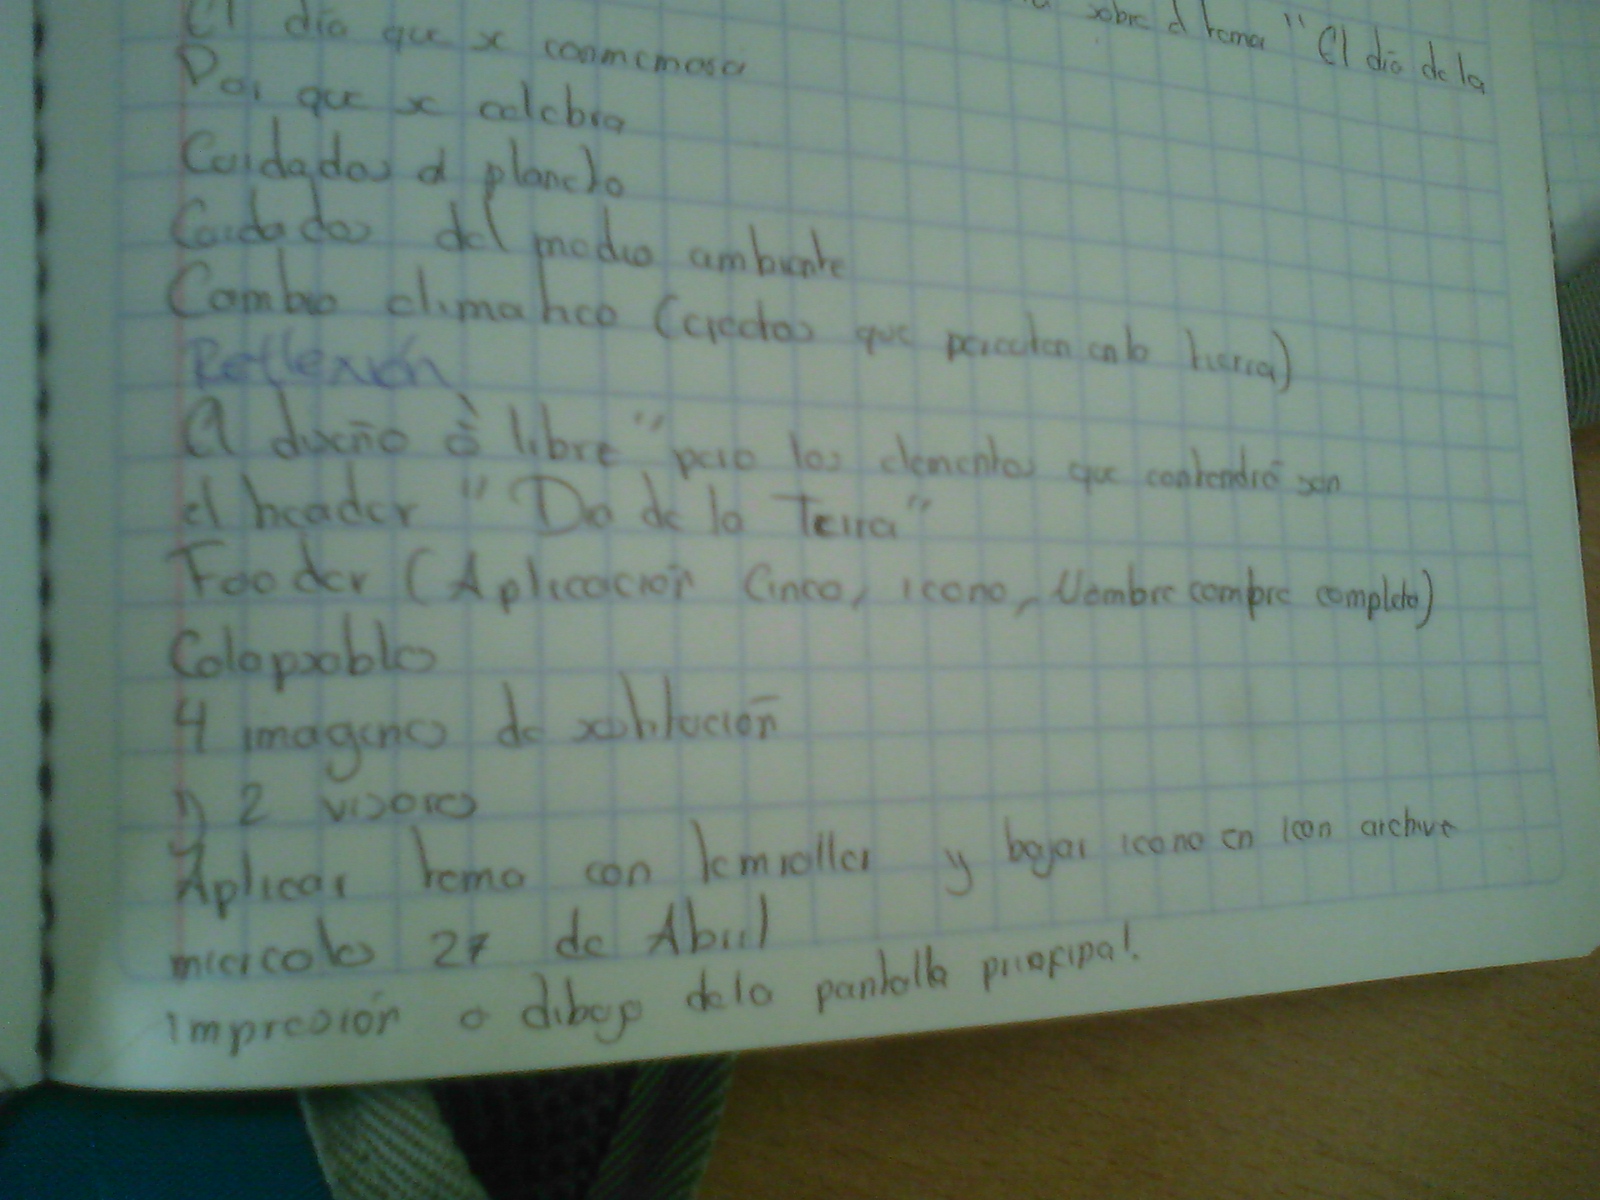 sobre el tema "El día de la
El día que se conmemora
Por que se celebra
Cuidados al planeta
Cuidados del medio ambiente
Cambio climatico (efectos que percuten en la tierra)
Reflexión
El diseño é libre" pero los elementos que contendrá son
el header "Día de la Tierra"
Fooder (Aplicación Cinco, icono, Nombre compre completo)
Colapsables
4 imagenes de
y 2 visores
Aplicar tema con temroller y bajar icono en icon archive
miercoles 27 de Abril
impresión o dibujo de la pantalla principal.